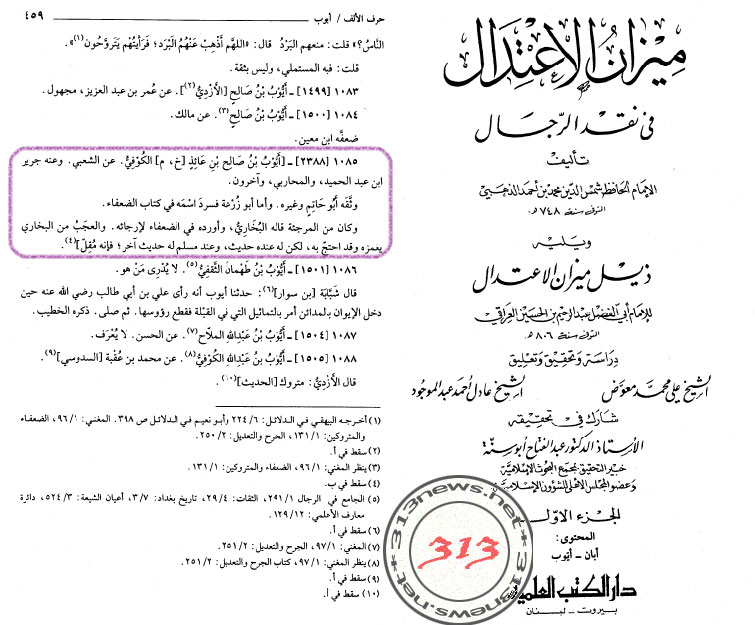 ميزان الاعتدال
في نقد الرجال
تأليف
الإمام الحافظ شمس الدين محمد بن أحمد الذهبي
المتوفى سنة ٧٤٨ هـ
ويليه
ذيل ميزان الاعتدال
للإمام أبي الفضل عبد الرحيم بن الحسين العراقي
المتوفى سنة ٨٠٦ هـ
دراسة وتحقيق وتعليق
الشيخ علي محمد معوض الشيخ عادل أحمد عبد الموجود
شارك في تحقيقه
الأستاذ الدكتور عبد الفتاح أبو سنة
خبير التحقيق بمجمع البحوث الإسلامية
وعضو المجلس الأعلى للشؤون الإسلامية
الجزء الأول
المحتوى:
أبان - أيوب
دار الكتب العلمية
بيروت - لبنان
حرف الألف / أيوب ٤٥٩
النَّاسُ؟» قلت: منعهم البَرْدُ قال: «اللهم أَذْهِبْ عَنْهُمُ الْبَرَدَ؛ فَرَأَيْتُهم يَتَرَوَّحُون(١)».
قلت: فيه المستملي، وليس بثقة.
١٠٨٣ [١٤٩٩] - أَيُّوبُ بْنُ صَالِحٍ [الأَزْدِيُّ(٢)]. عن عُمر بن عبد العزيز، مجهول.
١٠٨٤ [١٥٠٠] - أَيُّوبُ بْنُ صَالِحٍ(٣). عن مالك.
ضعفَّه ابن معين.
١٠٨٥ [٢٣٨٨] - [أَيُّوبُ بْنُ صَالِح بْنِ عَائِذٍ [خ، م] الكُوْفِيُّ. عن الشعبي. وعنه جرير
ابن عبد الحميد، والمحاربي، وآخرون.
وثَّقه أَبُو حَاتِمٍ وغيره. وأما أبو زُرْعة فسردَ اسْمَه في كتاب الضعفاء.
وكان من المرجئة قاله البُخَارِيُّ، وأورده في الضعفاء لإرجائه. والعجَبُ من البخاري
يغمزه وقد احتجّ به، لكن له عنده حديث، وعند مسلم له حديث آخر؛ فإنه مُقِلّ](٤).
١٠٨٦ [١٥٠١] - أَيُّوبُ بْنُ طَهْمَانَ الثَّقفِيُّ(٥). لا يُدْرى مَنْ هو.
قال شَبَابَة [بن سوار](٦): حدثنا أيوب أنه رأى علي بن أبي طالب رضي الله عنه حين
دخل الإيوان بالمدائن أمر بالتماثيل التي في القبْلة فقطع رؤوسها. ثم صلى. ذكره الخطيب.
١٠٨٧ [١٥٠٤] - أَيُّوبُ بْنُ عَبْدِاللهِ الملاّح(٧). عن الحسن. لا يُعْرَف.
١٠٨٨ [١٥٠٥] - أَيُّوبُ بْنُ عَبْدِاللهِ الكُوْفِيُّ(٨). عن محمد بن عُقْبة [السدوسي](٩).
قال الأَزْدِيُّ: متروك [الحديث](١٠).
(١) أخرجه البيهقي في الدلائل: ٢٢٤/٦ وأبو نعيم في الدلائل ص ٣٩٨. المغني: ٩٦/١، الضعفاء
والمتروكين: ١٣١/١، الجرح والتعديل: ٢٥٠/٢.
(٢) سقط في أ.
(٣) ينظر المغني: ٩٦/١، الضعفاء والمتروكين: ١٣١/١.
(٤) سقط في ب.
(٥) الجامع في الرجال ٢٩١/١، الثقات: ٢٩/٤، تاريخ بغداد: ٣/٧، أعيان الشيعة: ٥٢٤/٣، دائرة
معارف الأعلمي: ١٢٩/١٢.
(٦) سقط في أ.
(٧) المغني: ٩٧/١، الجرح والتعديل: ٢٥١/٢.
(٨) ينظر المغني: ٩٧/١، كتاب الجرح والتعديل: ٢٥١/٢.
(٩) سقط في أ.
(١٠) سقط في أ.
313news.net*313news.net*
313